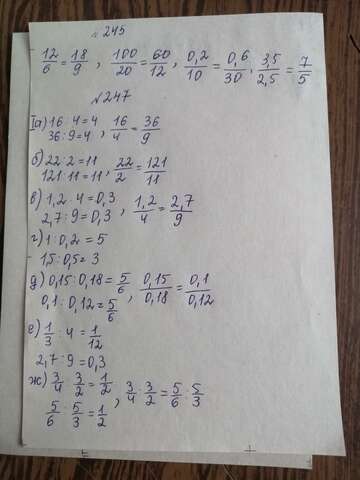 №245
12/6 = 18/9 , 100/20 = 60/12 , 0,2/10 = 0,6/30 ; 3,5/2,5 = 7/5
№247
Iа) 16 : 4 = 4 , 16/4 = 36/9
36 : 9 = 4
б) 22 : 2 = 11 , 22/2 = 121/11
121 : 11 = 11
в) 1,2 : 4 = 0,3 , 1,2/4 = 2,7/9
2,7 : 9 = 0,3
г) 1 : 0,2 = 5
1,5 : 0,5 = 3
д) 0,15 : 0,18 = 5/6 , 0,15/0,18 = 0,1/0,12
0,1 : 0,12 = 5/6
е) 1/3 : 4 = 1/12
2,7 : 9 = 0,3
ж) 3/4 : 3/2 = 1/2 , 3/4 : 3/2 = 5/6 : 5/3
5/6 : 5/3 = 1/2